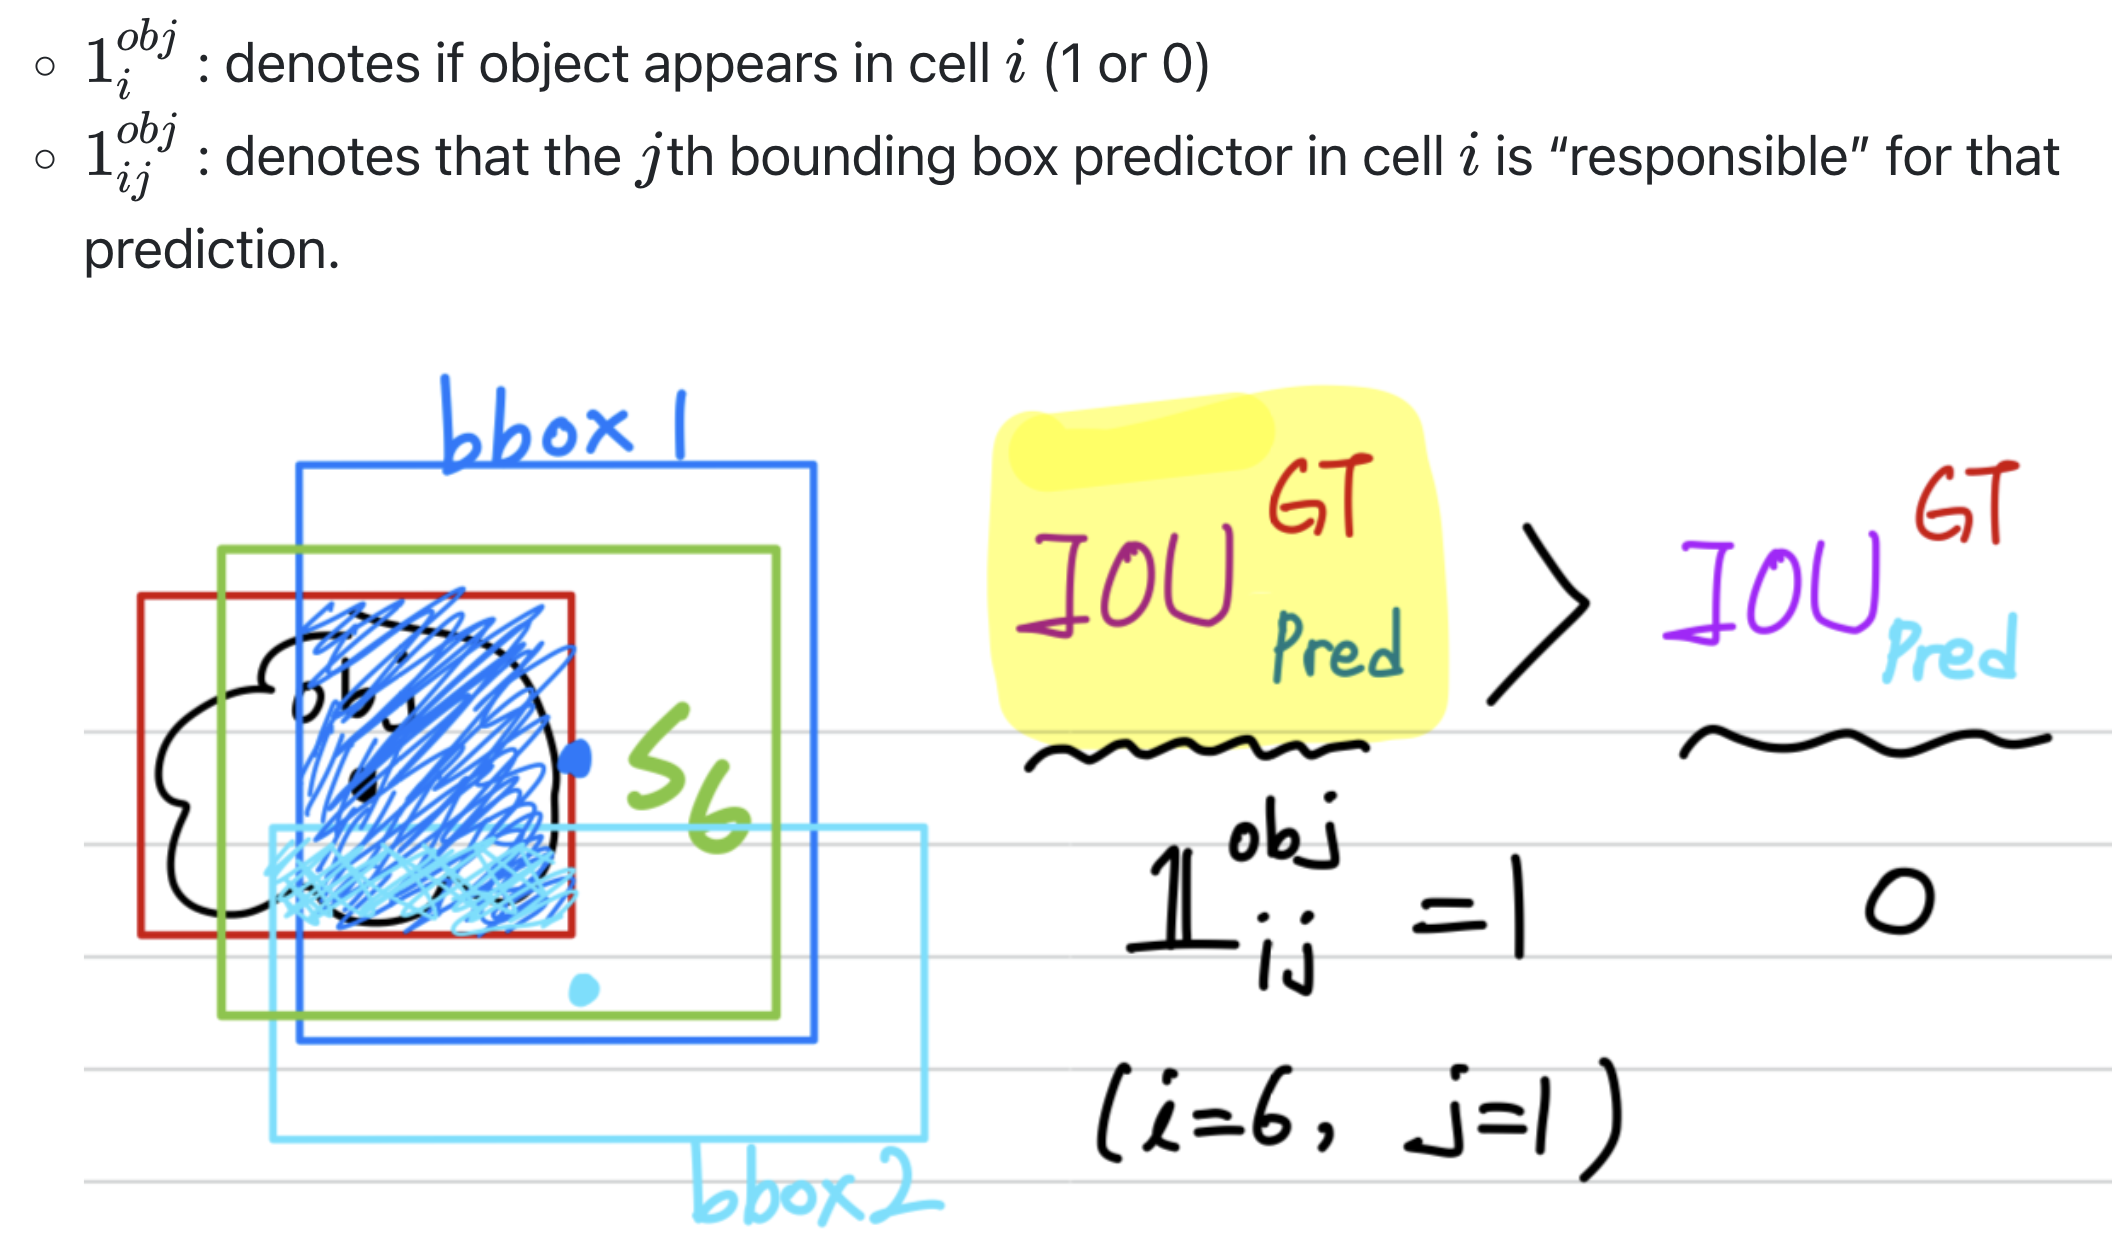 1_i^{obj} : denotes if object appears in cell i (1 or 0)
1_{ij}^{obj} : denotes that the jth bounding box predictor in cell i is “responsible” for that
prediction.
bbox 1
obj
S6
bbox2
IOU^{GT}_{Pred} > IOU^{GT}_{Pred}
1^{obj}_{ij} = 1 0
(i=6, j=1)